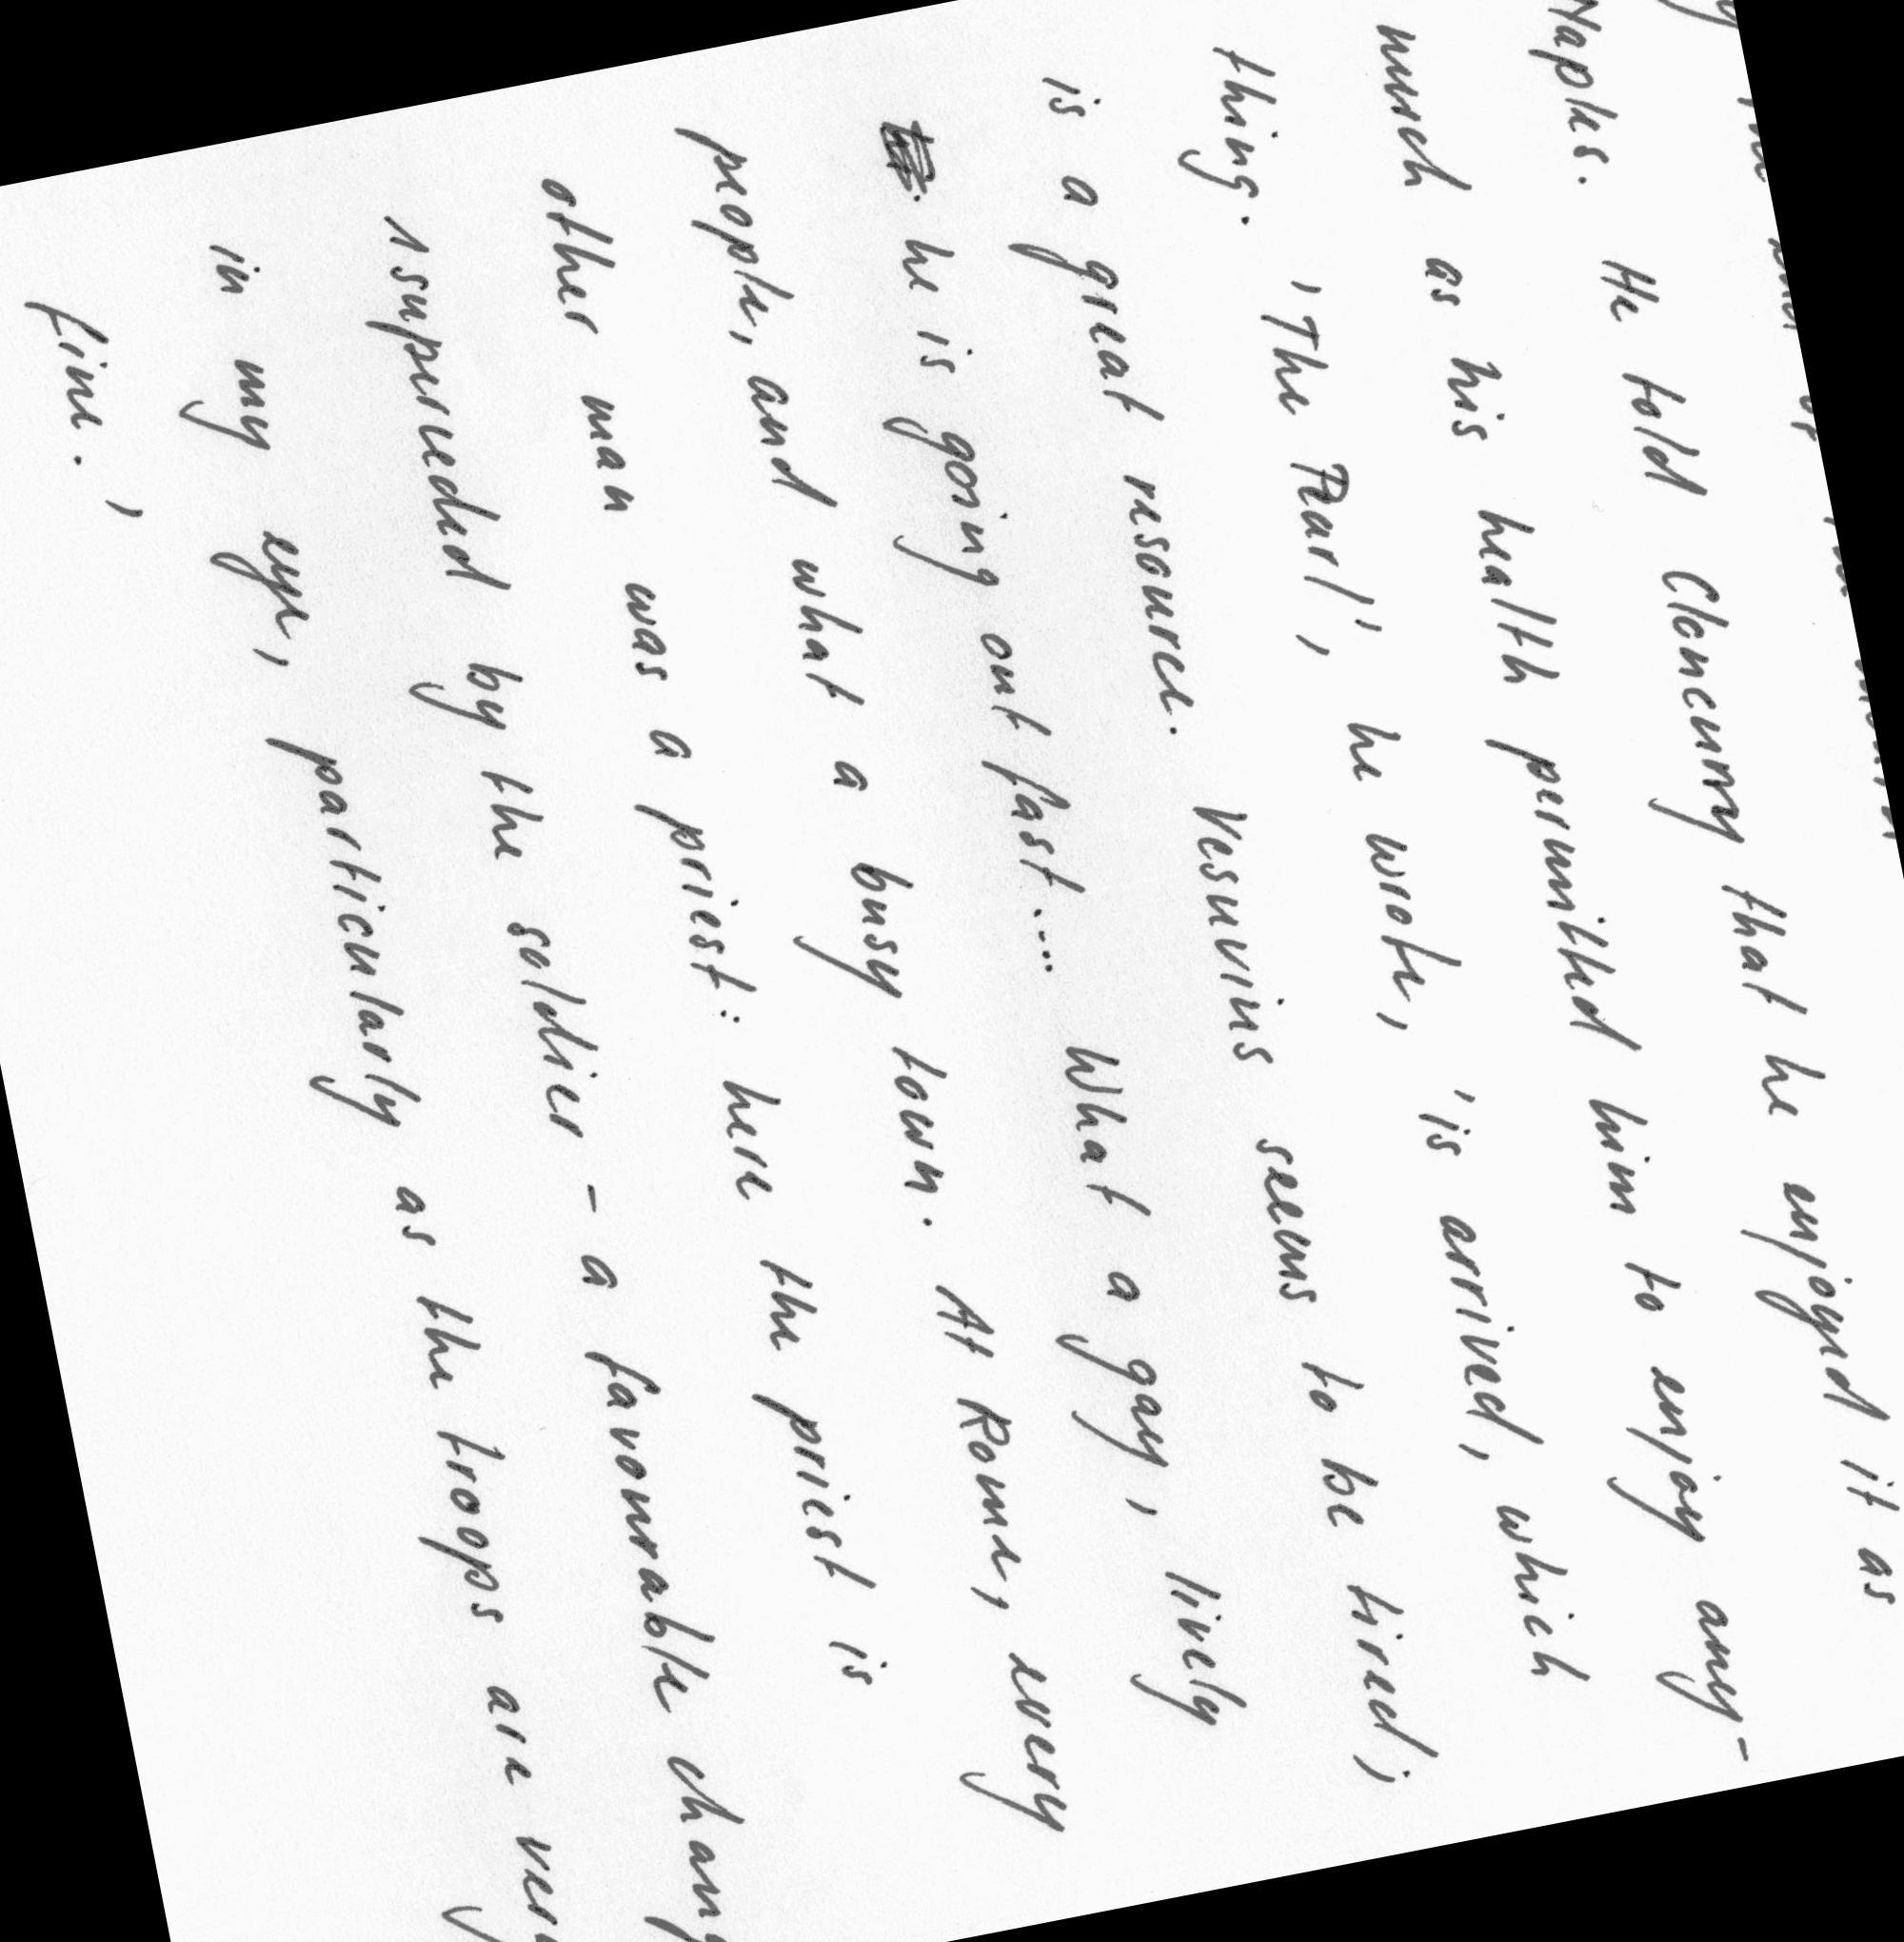 Naples. He told Cloncurry that he enjoyed it as
much as his health permitted him to enjoy any-
thing. 'The Pearl', he wrote, 'is arrived, which
is a great resource. Vesuvius seems to be tired;
he is going out fast.... What a gay, lively
people, and what a busy town. At Rome, every
other man was a priest: here the priest is
superceded by the soldier - a favourable chang
in my eye, particularly as the troops are very
fine.'